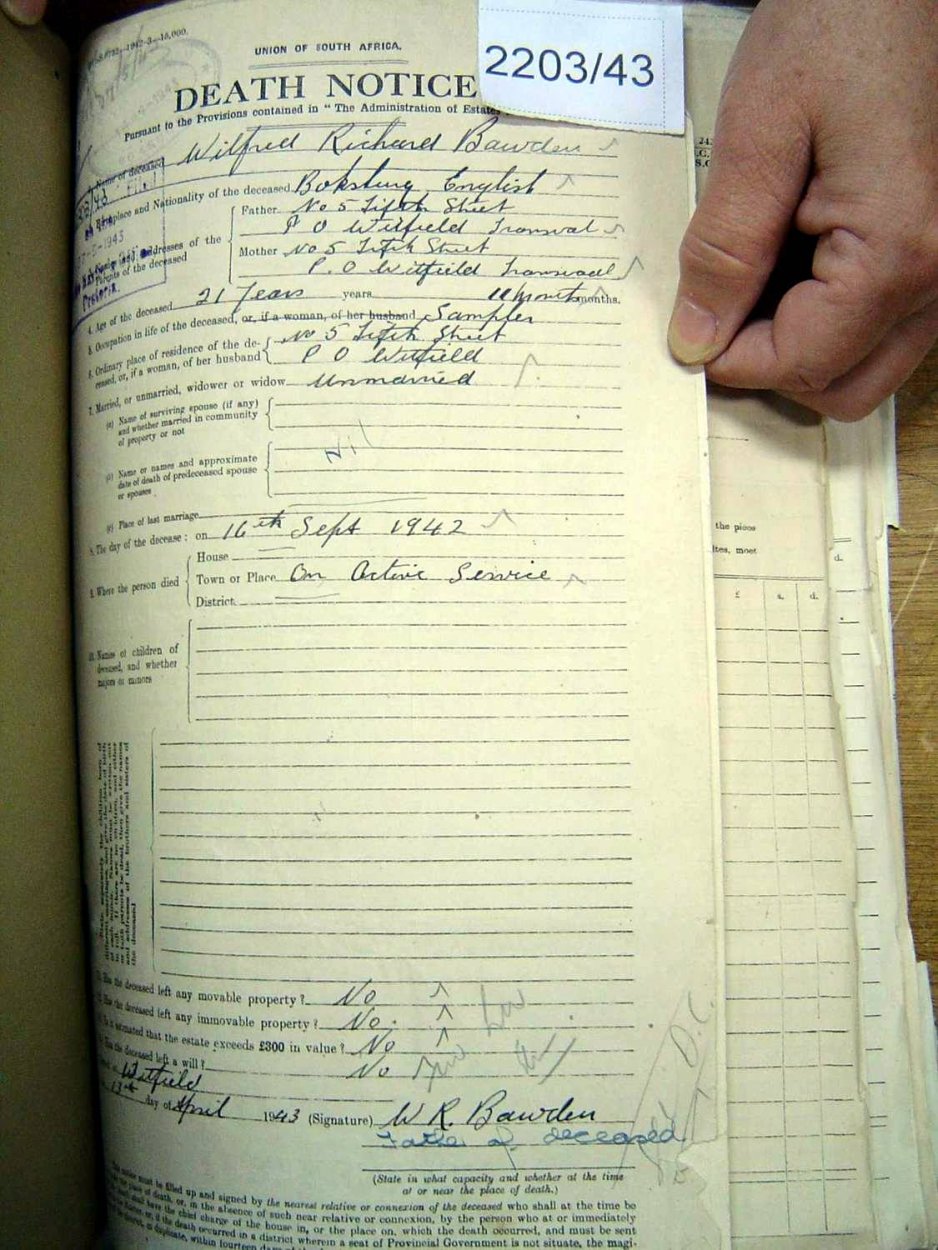 1942-3-15,000.
UNION OF SOUTH AFRICA.
2203/43
DEATH NOTICE
Pursuant to the Provisions contained in "The Administration of Estates
Name of deceased Wilfred Richard Bawden
Birthplace and Nationality of the deceased Boksburg English
addresses of the Parents of the deceased
Father No 5 Fifth Street
P O Witfield Transvaal
Mother No 5 Fifth Street
P.O Witfield Transvaal
4. Age of the deceased 21 Years years months months.
5. Occupation in life of the deceased, or, if a woman, of her husband Sampler
6. Ordinary place of residence of the de-
ceased, or, if a woman, of her husband
No 5 Fifth Street
P O Witfield
7. Married, or unmarried, widower or widow Unmarried
(a) Name of surviving spouse (if any)
and whether married in community
of property or not
(b) Name or names and approximate
date of death of predeceased spouse
or spouses
Nil
(c) Place of last marriage
8. The day of the decease: on 16th Sept 1942
9. Where the person died
House
Town or Place On Active Service
District
10. Names of children of
deceased, and whether
majors or minors
Has the deceased left any movable property? No
Has the deceased left any immovable property? No.
Is it estimated that the estate exceeds £300 in value? No
Has the deceased left a will? No
Witfield
day of April 1943 (Signature) W R. Bawden
Father of deceased
(State in what capacity and whether at the time
at or near the place of death.)
notice must be filled up and signed by the nearest relative or connexion of the deceased who shall at the time be
the place of death, or, in the absence of such near relative or connexion, by the person who at or immediately
shall have the chief charge of the house in, or the place on, which the death occurred, and must be sent
if the death occurred in a district wherein a seat of Provincial Government is not situate, the magi-
duplicate, within fourteen days
the piece
meet
£ s. d.
d.